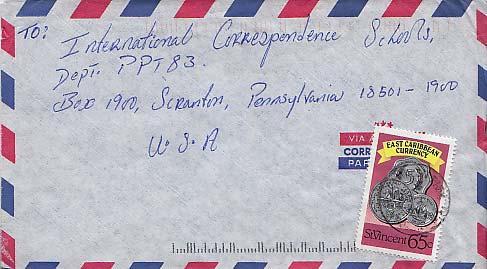 TO:
International Correspondence Schools,
Dept. PPT83.
Box 1900, Scranton, Pennsylvania 18501-1900
U.S.A
VIA
CORR
PAR
EAST CARIBBEAN
CURRENCY
St Vincent 65c